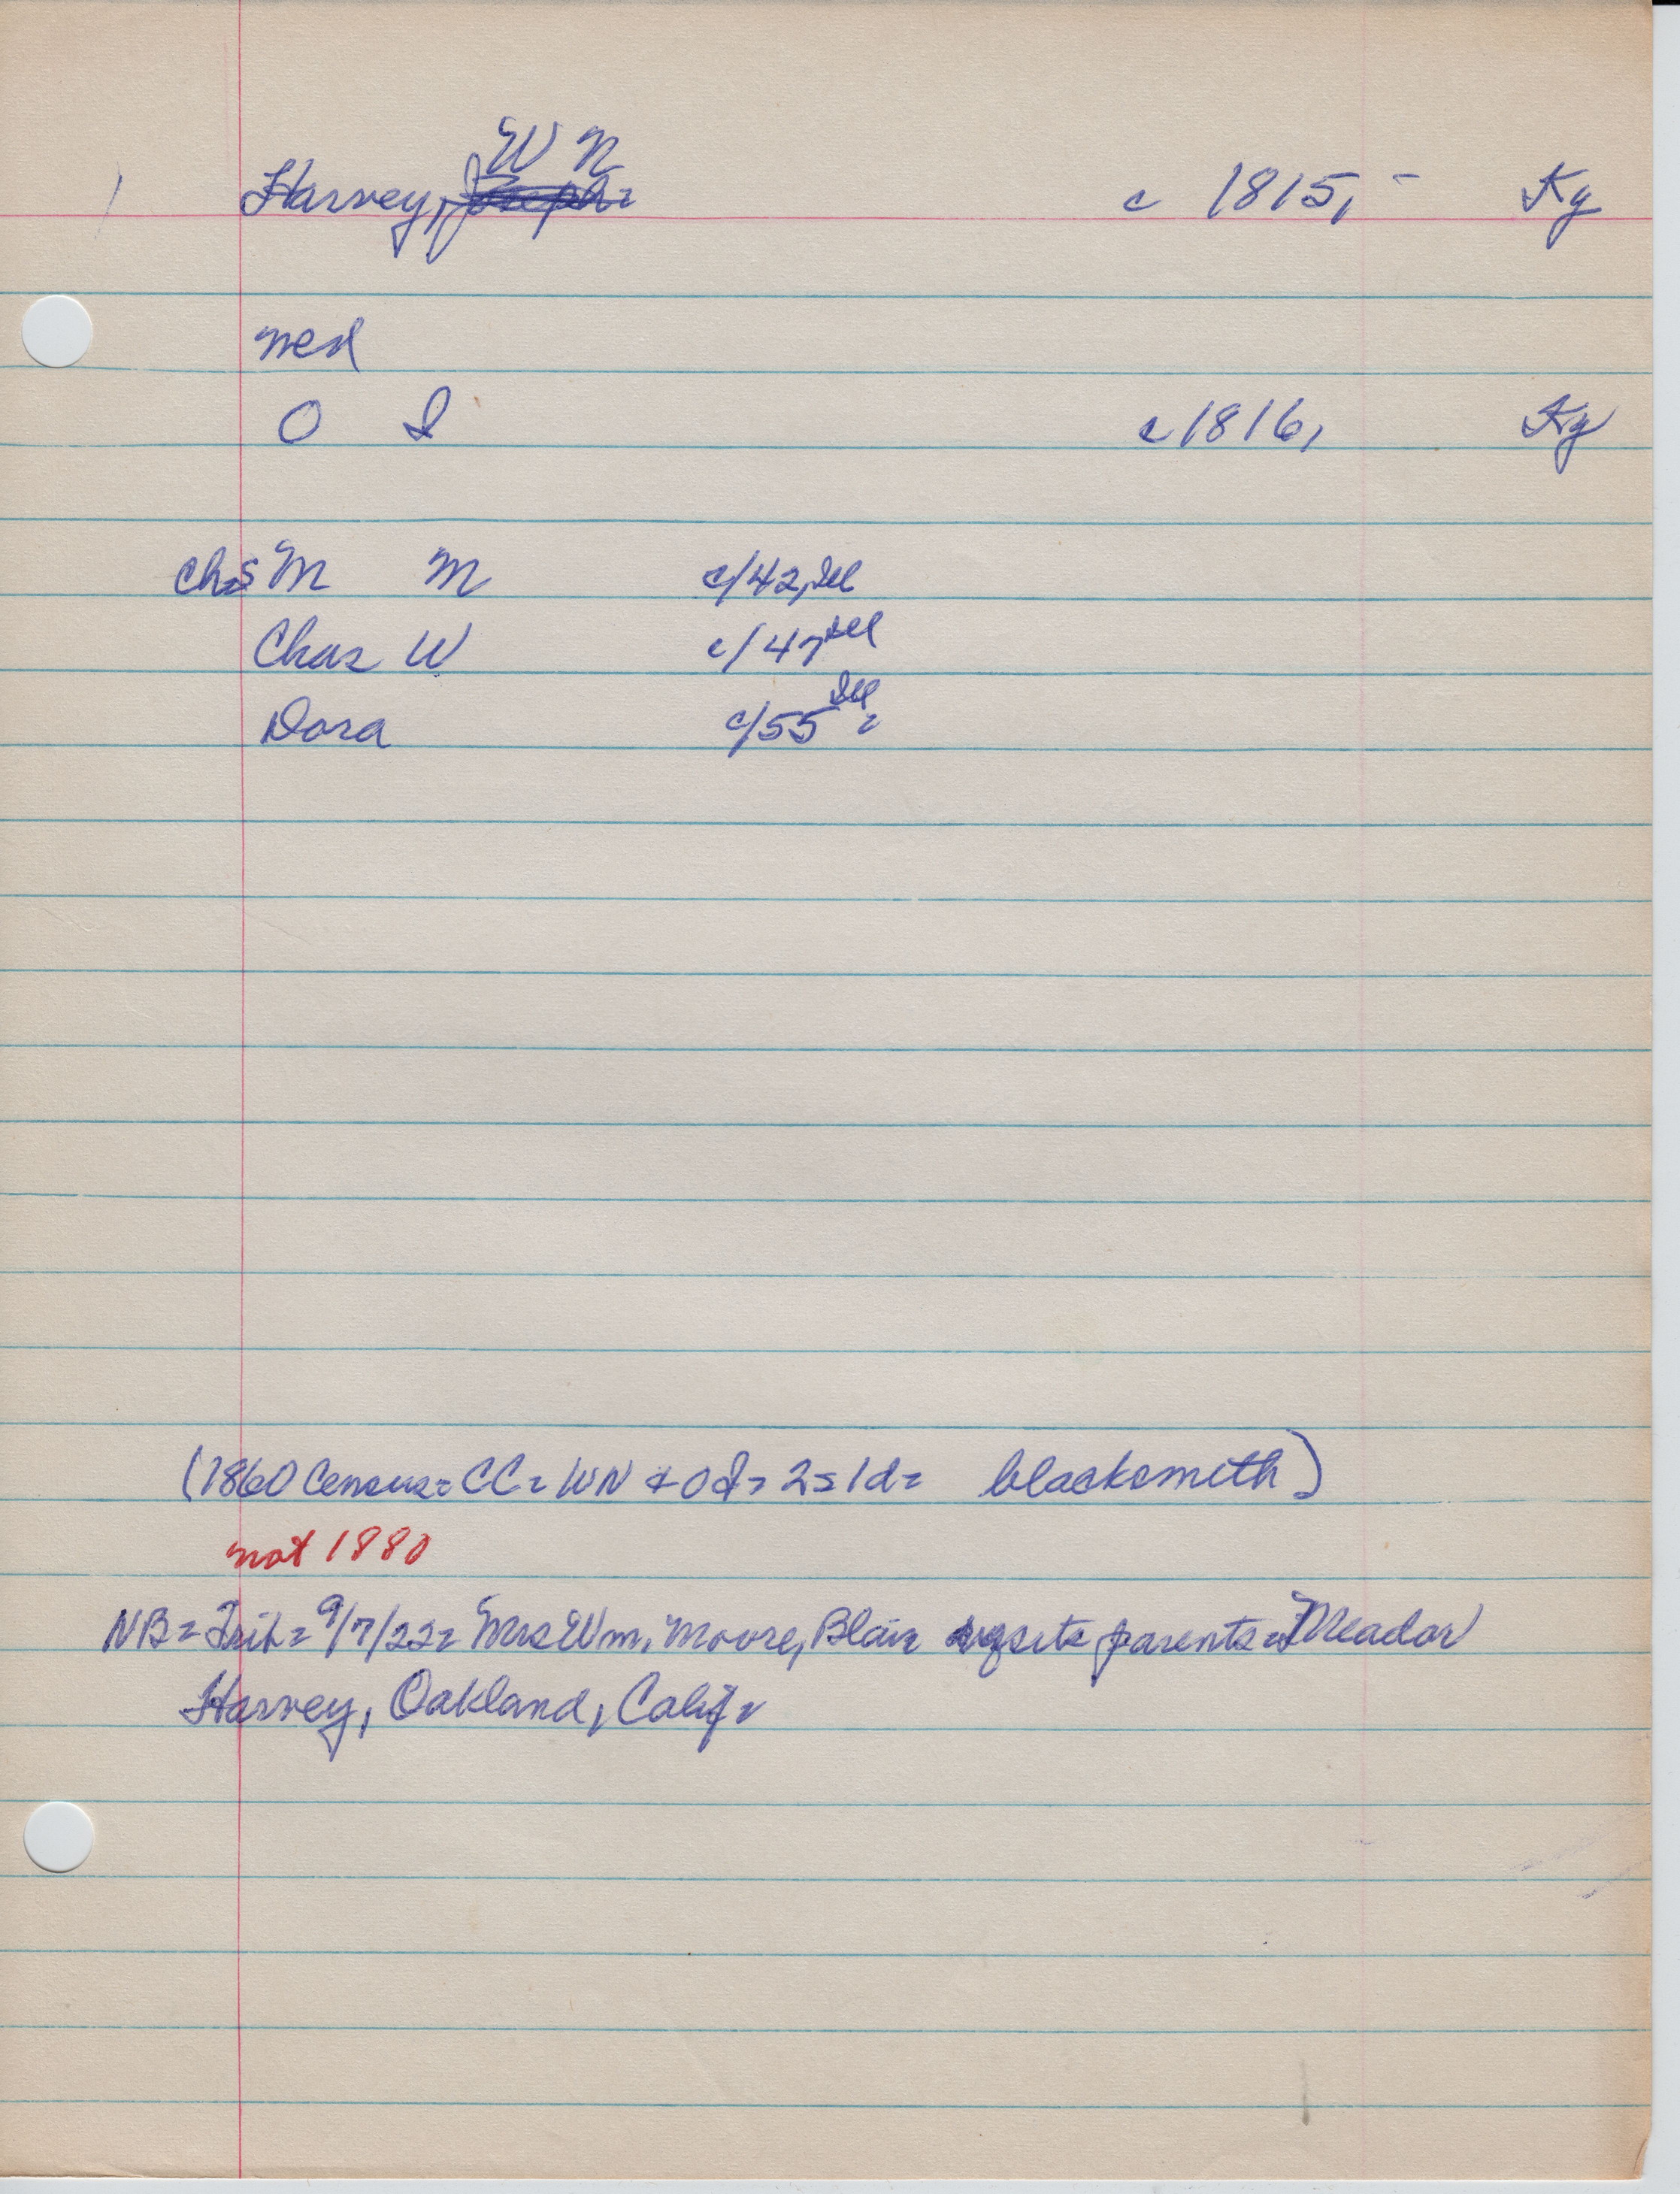 W N
Harvey, Joseph= c 1815, - Ky
med
O I c 1816, Ky
chs M M c/42, Ill
Chas W c/47 Ill
Dora c/55 Ill=
(1860 Census= CC= WN & O I= 2s 1d= blacksmith)
not 1880
NB= Trib= 9/7/22= Mrs Wm. Moore, Blair parents= Meador
Harvey, Oakland, Calif=